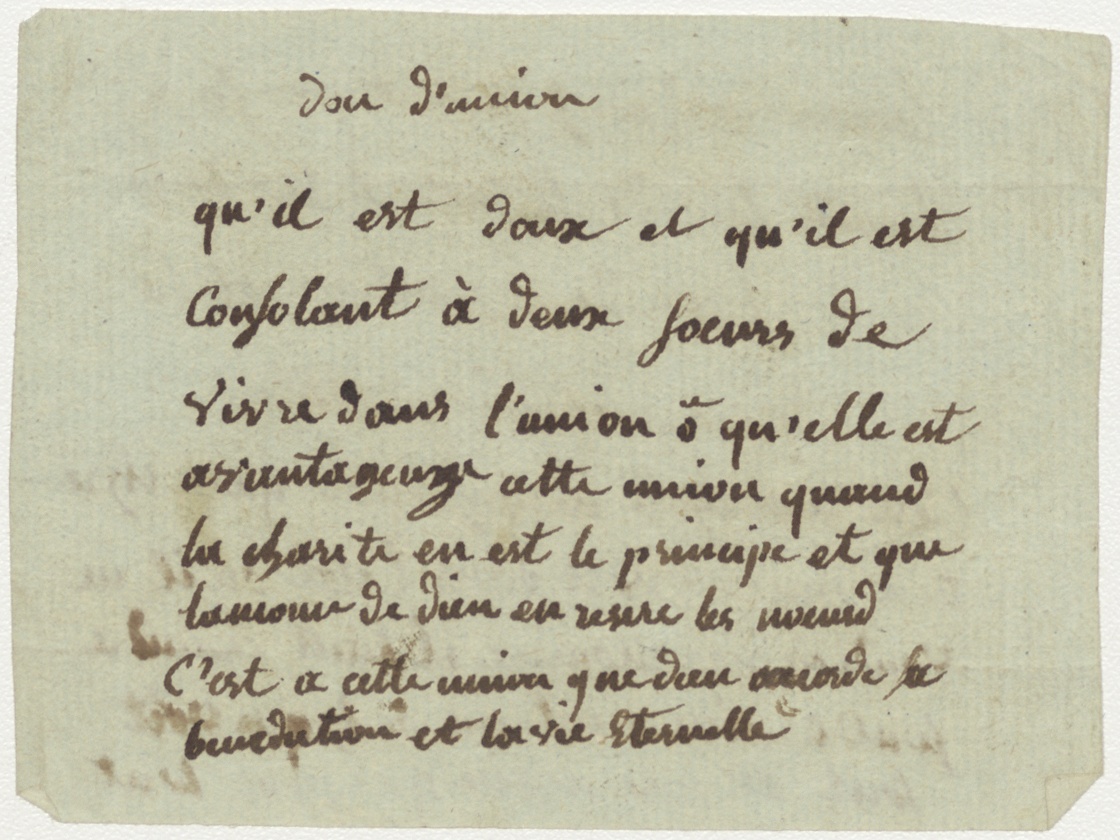 don d'union
qu'il est doux et qu'il est
Consolant à deux soeurs de
vivre dans l'union ô qu'elle est
avantageuse cette union quand
la charite en est le principe et que
lamour de dieu en resere les noeud
C'est a cette union que dieu acorde la
benediction et la vie Eternelle